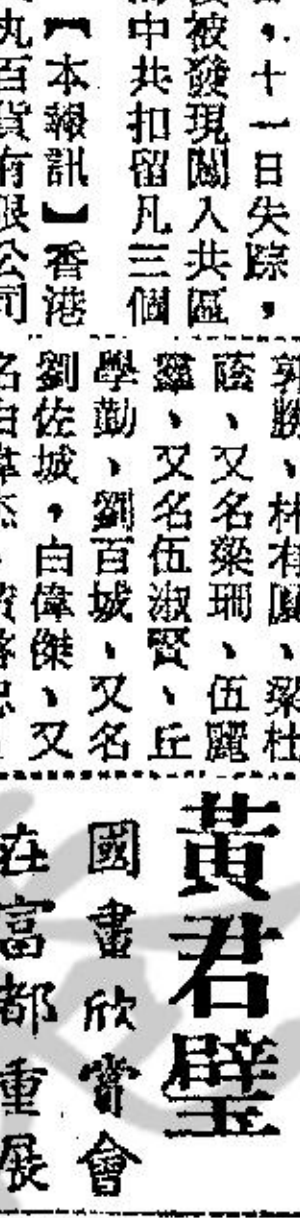 ，十一日失踪，
被發現闖入共區
中共扣留凡三個
【本報訊】香港
九百貨有限公司
郭勝、林有鳳、梁杜
蔭、又名梁珊、伍麗
、又名伍淑賢、丘
學勤、劉百城、又名
劉佐城，白偉傑、又
名白偉杰、
黃君璧
國畫欣賞會
在富都重展